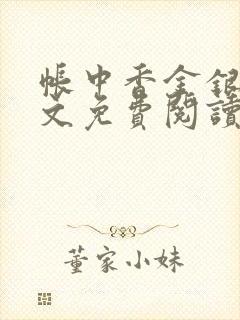 帳中香金銀
文免費閱讀
董家小妹